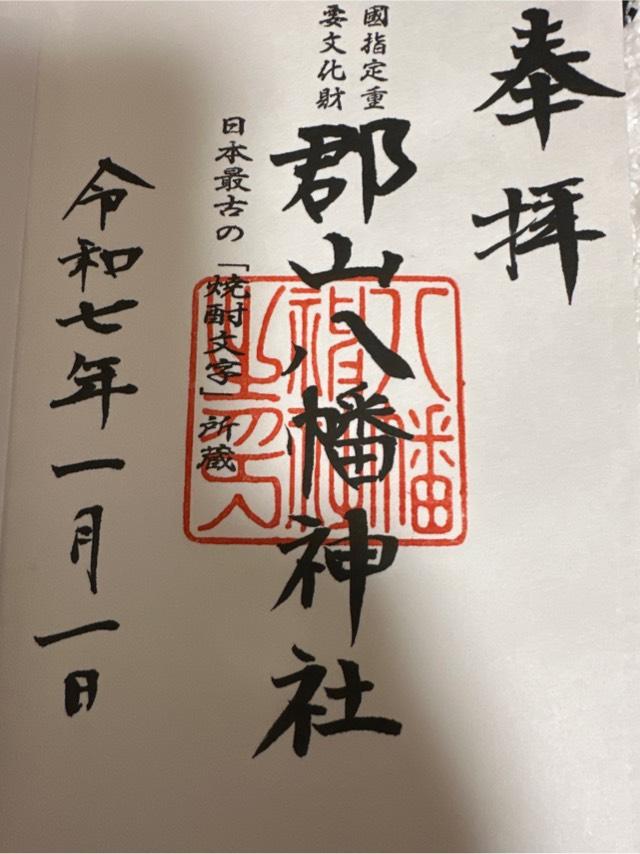 奉拝
國指定重
要文化財
郡山八幡神社
日本最古の「焼酎文字」所蔵
令和七年一月一日